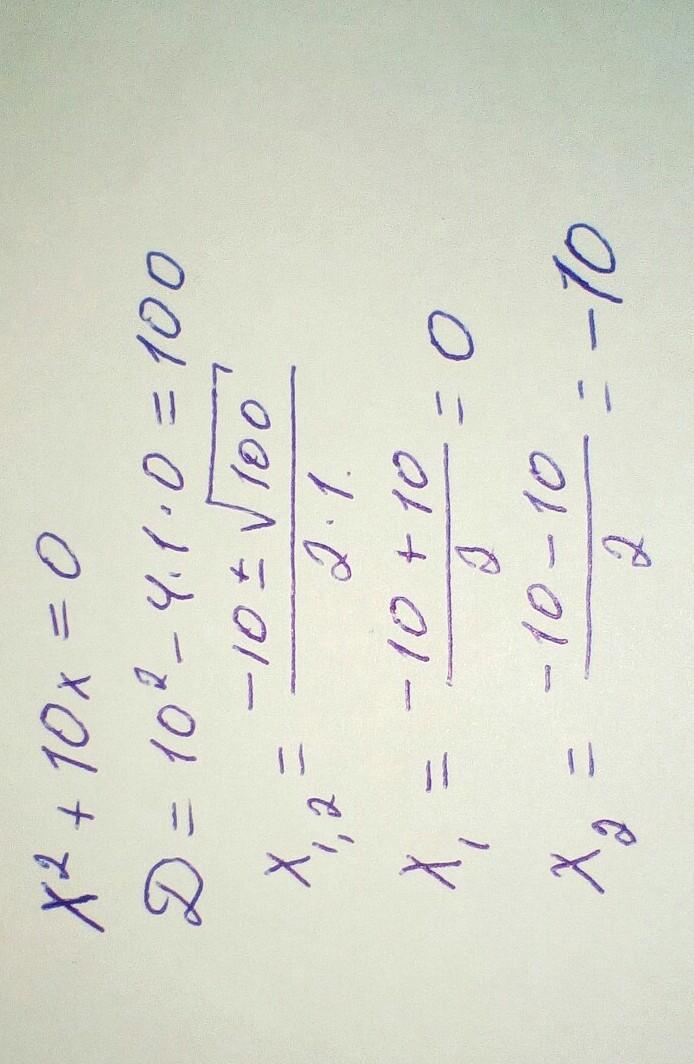 x² + 10x = 0
D = 10² - 4·1·0 = 100
x₁,₂ = (-10 ± √100) / (2·1)
x₁ = (-10 + 10) / 2 = 0
x₂ = (-10 - 10) / 2 = -10